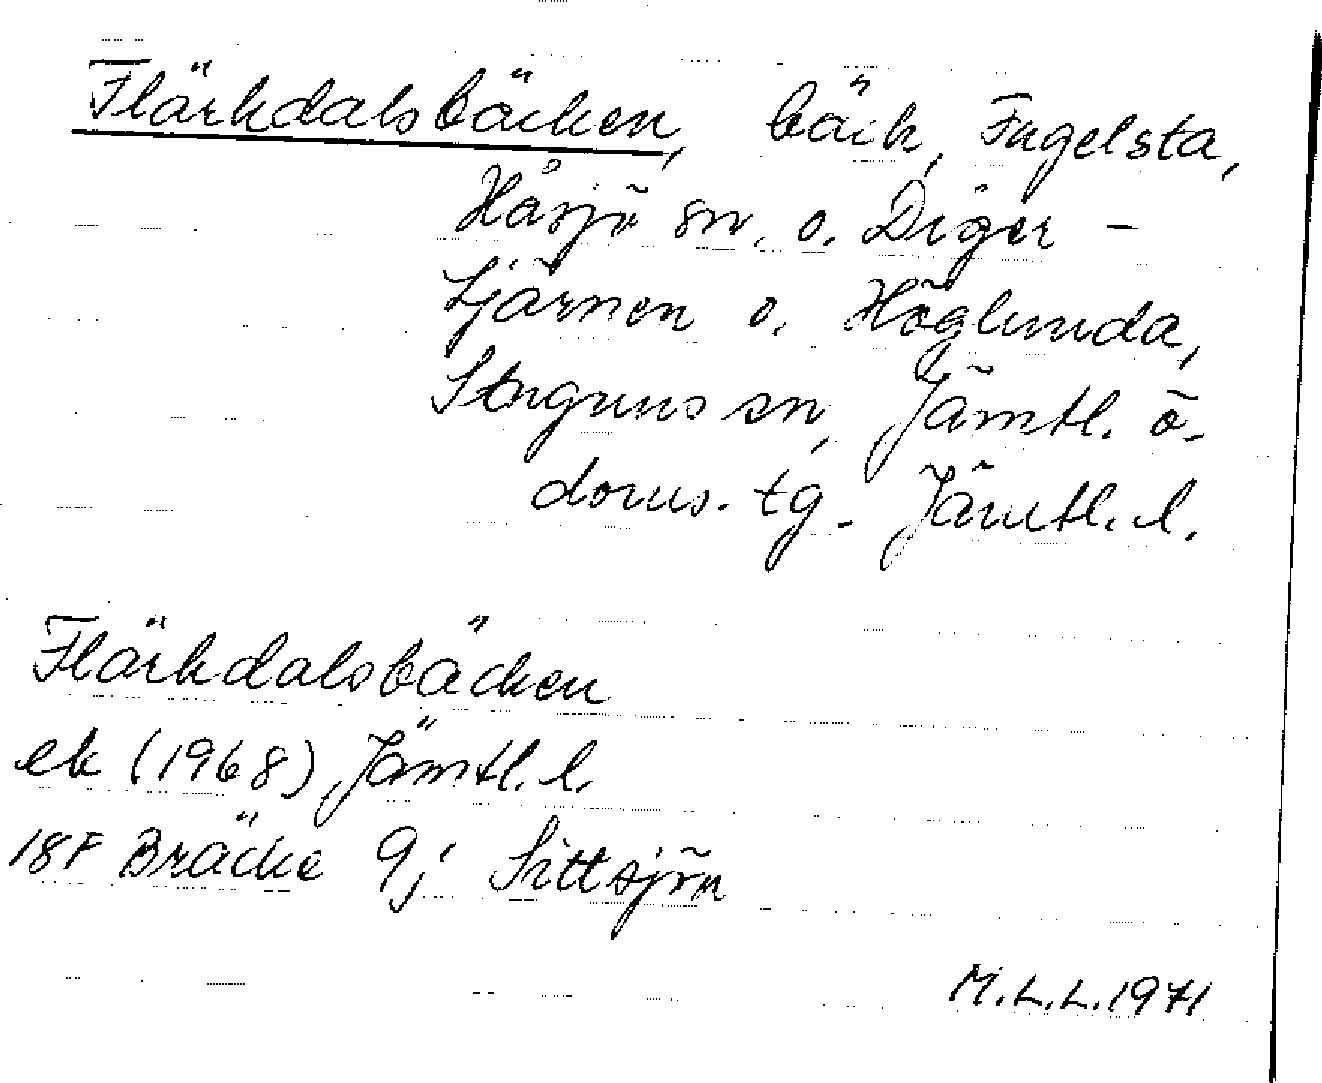 Flärkdalsbäcken, bäck, Fugelsta,
Håsjö sn. o. Diger-
tjärnen o. Höglunda,
Stuguns sn, Jämtl. ö.
doms. tg. Jämtl. l.
Flärkdalsbäcken
ek (1968) Jämtl. l.
18F Bräcke 9j Sittsjön
M.L.L. 1971